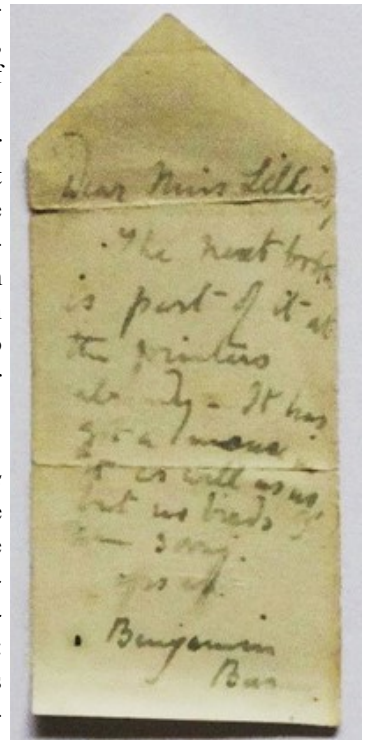 Dear Miss Lilling
The next book
is part of it at
the printers
already – It has
got a mouse in
it as well as us,
but no birds I
am sorry.
Benjamin
Bun